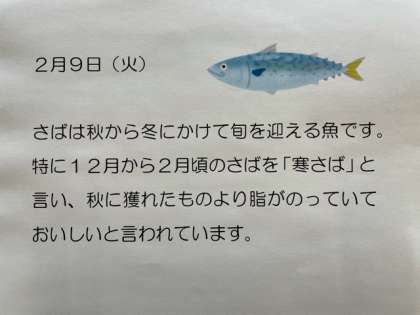 ２月９日（火）
さばは秋から冬にかけて旬を迎える魚です。
特に１２月から２月頃のさばを「寒さば」と
言い、秋に獲れたものより脂がのっていて
おいしいと言われています。